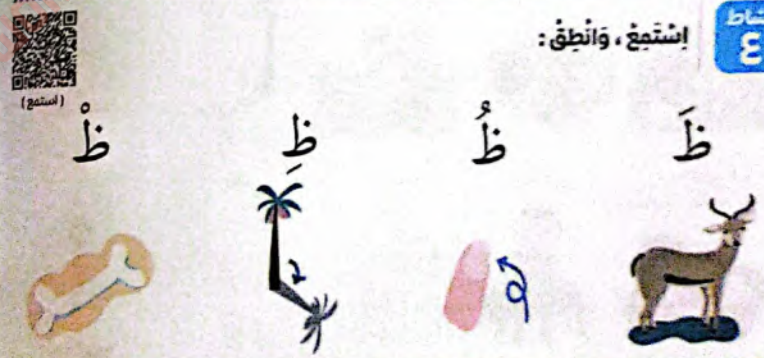 نشاط
٤
اِسْتَمِعْ ، وَانْطِقْ :
(استمع)
ظَ ظُ ظِ ظْ